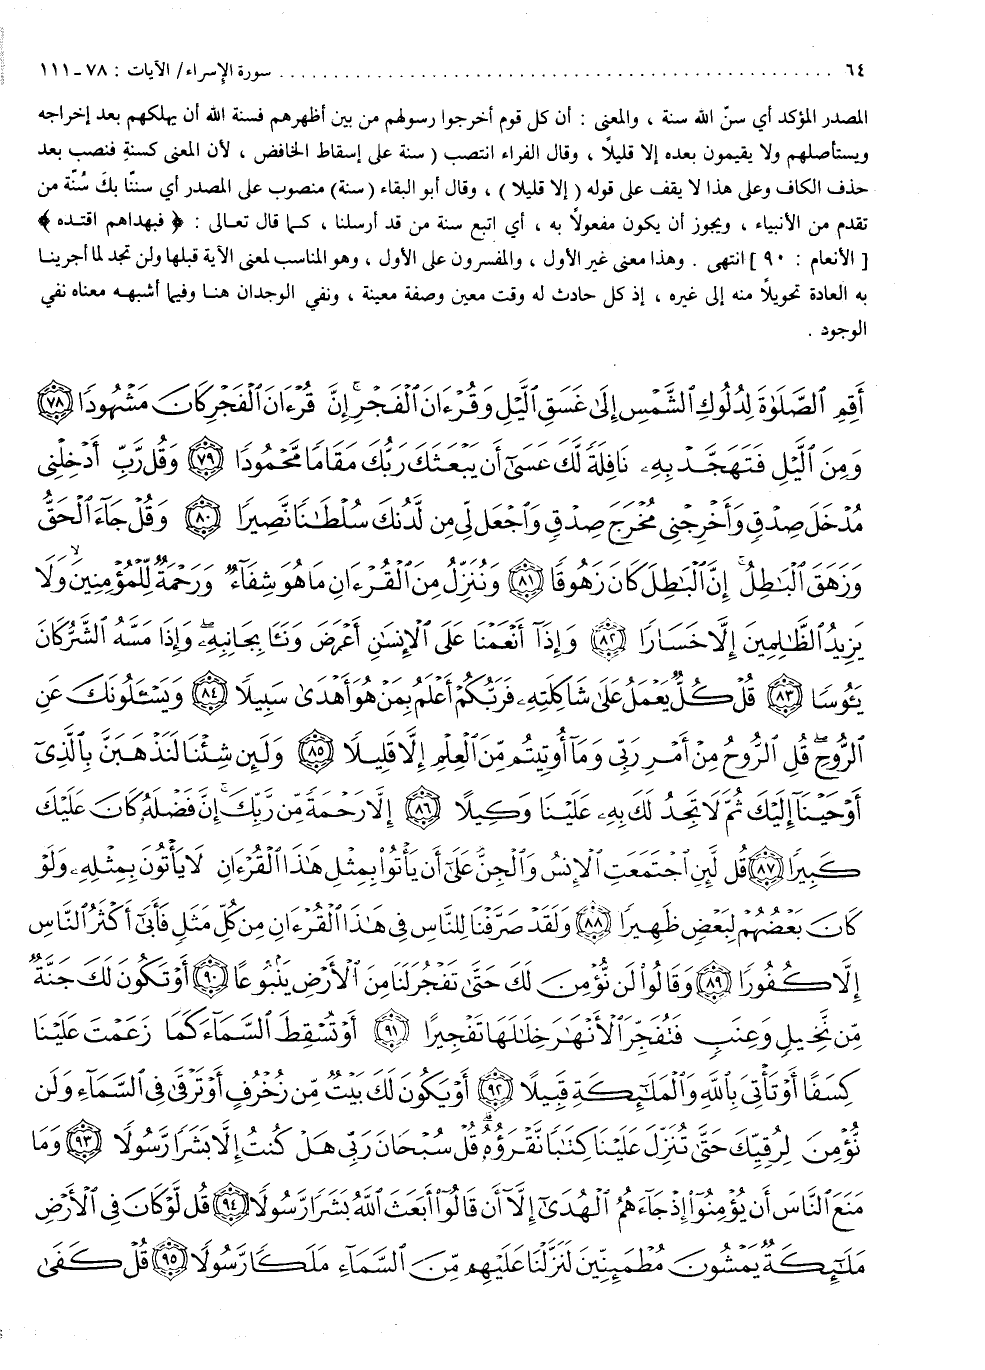 ٦٤ .................................................. سورة الإسراء/ الآيات : ٧٨ـ١١١
المصدر المؤكد أي سنّ الله سنة ، والمعنى : أن كل قوم أخرجوا رسولهم من بين أظهرهم فسنة الله أن يهلكهم بعد إخراجه
ويستأصلهم ولا يقيمون بعده إلا قليلاً ، وقال الفراء انتصب ( سنة على إسقاط الخافض ، لأن المعنى كسنةِ فنصب بعد
حذف الكاف وعلى هذا لا يقف على قوله ( إلا قليلا ) ، وقال أبو البقاء (سنة) منصوب على المصدر أي سننّا بكَ سُنّة من
تقدم من الأنبياء ، ويجوز أن يكون مفعولاً به ، أي اتبع سنة من قد أرسلنا ، كما قال تعالى : ﴿ فبهداهم اقتده ﴾
[ الأنعام : ٩٠ ] انتهى . وهذا معنى غير الأول ، والمفسرون على الأول ، وهو المناسب لمعنى الآية قبلها ولن تجد لما أجرينا
به العادة تحويلاً منه إلى غيره ، إذ كل حادث له وقت معين وصفة معينة ، ونفي الوجدان هنا وفيما أشبهه معناه نفي
الوجود .
أَقِمِ ٱلصَّلَوٰةَ لِدُلُوكِ ٱلشَّمْسِ إِلَىٰ غَسَقِ ٱلَّيْلِ وَقُرْءَانَ ٱلْفَجْرِۚ إِنَّ قُرْءَانَ ٱلْفَجْرِ كَانَ مَشْهُودًا ٧٨
وَمِنَ ٱلَّيْلِ فَتَهَجَّدْ بِهِۦ نَافِلَةً لَّكَ عَسَىٰٓ أَن يَبْعَثَكَ رَبُّكَ مَقَامًا مَّحْمُودًا ٧٩ وَقُل رَّبِّ أَدْخِلْنِى
مُدْخَلَ صِدْقٍ وَأَخْرِجْنِى مُخْرَجَ صِدْقٍ وَٱجْعَل لِّى مِن لَّدُنكَ سُلْطَٰنًا نَّصِيرًا ٨٠ وَقُلْ جَآءَ ٱلْحَقُّ
وَزَهَقَ ٱلْبَٰطِلُۚ إِنَّ ٱلْبَٰطِلَ كَانَ زَهُوقًا ٨١ وَنُنَزِّلُ مِنَ ٱلْقُرْءَانِ مَا هُوَ شِفَآءٌ وَرَحْمَةٌ لِّلْمُؤْمِنِينَۙ وَلَا
يَزِيدُ ٱلظَّٰلِمِينَ إِلَّا خَسَارًا ٨٢ وَإِذَآ أَنْعَمْنَا عَلَى ٱلْإِنسَٰنِ أَعْرَضَ وَنَـَٔا بِجَانِبِهِۦۖ وَإِذَا مَسَّهُ ٱلشَّرُّ كَانَ
يَـُٔوسًا ٨٣ قُلْ كُلٌّ يَعْمَلُ عَلَىٰ شَاكِلَتِهِۦ فَرَبُّكُمْ أَعْلَمُ بِمَنْ هُوَ أَهْدَىٰ سَبِيلًا ٨٤ وَيَسْـَٔلُونَكَ عَنِ
ٱلرُّوحِۖ قُلِ ٱلرُّوحُ مِنْ أَمْرِ رَبِّى وَمَآ أُوتِيتُم مِّنَ ٱلْعِلْمِ إِلَّا قَلِيلًا ٨٥ وَلَئِن شِئْنَا لَنَذْهَبَنَّ بِٱلَّذِىٓ
أَوْحَيْنَآ إِلَيْكَ ثُمَّ لَا تَجِدُ لَكَ بِهِۦ عَلَيْنَا وَكِيلًا ٨٦ إِلَّا رَحْمَةً مِّن رَّبِّكَۚ إِنَّ فَضْلَهُۥ كَانَ عَلَيْكَ
كَبِيرًا ٨٧ قُل لَّئِنِ ٱجْتَمَعَتِ ٱلْإِنسُ وَٱلْجِنُّ عَلَىٰٓ أَن يَأْتُوا۟ بِمِثْلِ هَٰذَا ٱلْقُرْءَانِ لَا يَأْتُونَ بِمِثْلِهِۦ وَلَوْ
كَانَ بَعْضُهُمْ لِبَعْضٍ ظَهِيرًا ٨٨ وَلَقَدْ صَرَّفْنَا لِلنَّاسِ فِى هَٰذَا ٱلْقُرْءَانِ مِن كُلِّ مَثَلٍ فَأَبَىٰٓ أَكْثَرُ ٱلنَّاسِ
إِلَّا كُفُورًا ٨٩ وَقَالُوا۟ لَن نُّؤْمِنَ لَكَ حَتَّىٰ تَفْجُرَ لَنَا مِنَ ٱلْأَرْضِ يَنۢبُوعًا ٩٠ أَوْ تَكُونَ لَكَ جَنَّةٌ
مِّن نَّخِيلٍ وَعِنَبٍ فَتُفَجِّرَ ٱلْأَنْهَٰرَ خِلَٰلَهَا تَفْجِيرًا ٩١ أَوْ تُسْقِطَ ٱلسَّمَآءَ كَمَا زَعَمْتَ عَلَيْنَا
كِسَفًا أَوْ تَأْتِىَ بِٱللَّهِ وَٱلْمَلَٰٓئِكَةِ قَبِيلًا ٩٢ أَوْ يَكُونَ لَكَ بَيْتٌ مِّن زُخْرُفٍ أَوْ تَرْقَىٰ فِى ٱلسَّمَآءِ وَلَن
نُّؤْمِنَ لِرُقِيِّكَ حَتَّىٰ تُنَزِّلَ عَلَيْنَا كِتَٰبًا نَّقْرَؤُهُۥۗ قُلْ سُبْحَانَ رَبِّى هَلْ كُنتُ إِلَّا بَشَرًا رَّسُولًا ٩٣ وَمَا
مَنَعَ ٱلنَّاسَ أَن يُؤْمِنُوٓا۟ إِذْ جَآءَهُمُ ٱلْهُدَىٰٓ إِلَّآ أَن قَالُوٓا۟ أَبَعَثَ ٱللَّهُ بَشَرًا رَّسُولًا ٩٤ قُل لَّوْ كَانَ فِى ٱلْأَرْضِ
مَلَٰٓئِكَةٌ يَمْشُونَ مُطْمَئِنِّينَ لَنَزَّلْنَا عَلَيْهِم مِّنَ ٱلسَّمَآءِ مَلَكًا رَّسُولًا ٩٥ قُلْ كَفَىٰ